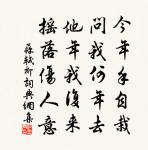 今年手自栽
問我何年去
他年我復來
搖落傷人意
蘇軾柳詞典網集